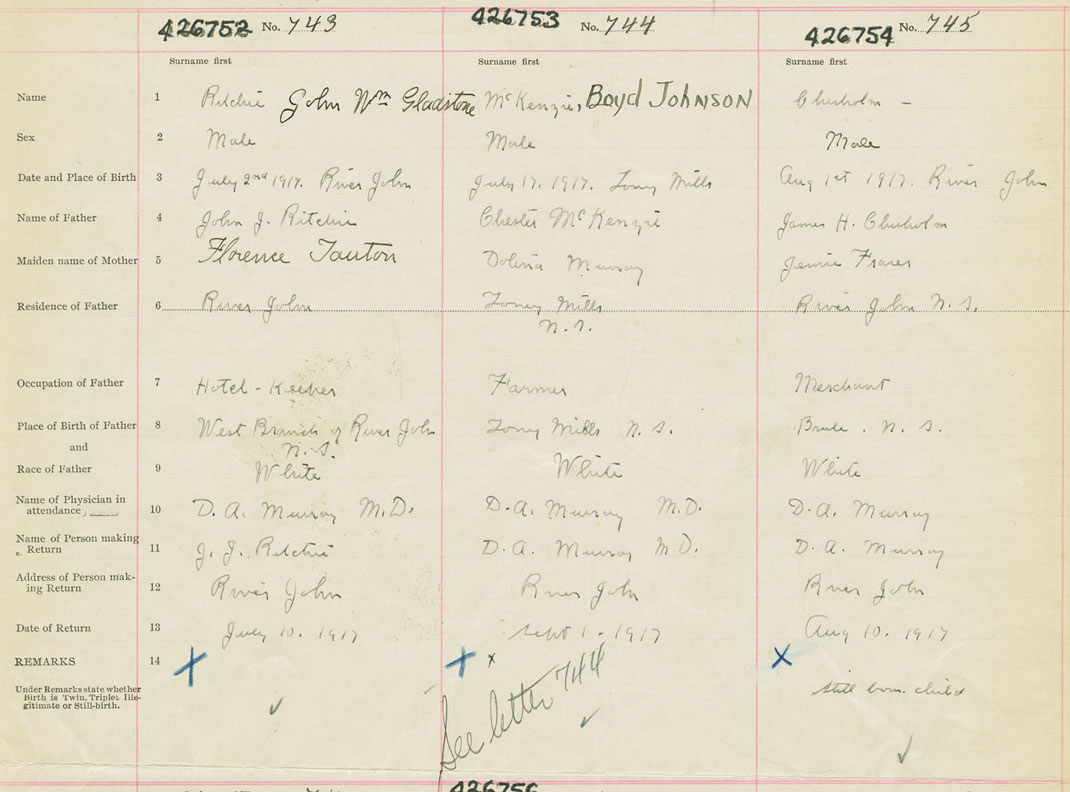 426752 No. 743 426753 No. 744 426754 No. 745
Surname first Surname first Surname first
Name 1 Ritchie John Wm Gladstone McKenzie, Boyd JOHNSON Chisholm –
Sex 2 Male Male Male
Date and Place of Birth 3 July 2nd 1917. River John July 17. 1917. Toney Mills Aug 1st 1917. River John
Name of Father 4 John J. Ritchie Chester McKenzie James H. Chisholm
Maiden name of Mother 5 Florence Tauton Dolina Murray Jennie Fraser
Residence of Father 6 River John Toney Mills River John N.S.
N.S.
Occupation of Father 7 Hotel-Keeper Farmer Merchant
Place of Birth of Father 8 West Branch of River John Toney Mills N.S. Brule. N.S.
and N.S.
Race of Father 9 White White White
Name of Physician in
attendance 10 D. A. Murray M.D. D.A. Murray M.D. D.A. Murray
Name of Person making
Return 11 J. J. Ritchie D.A. Murray M.D. D.A. Murray
Address of Person mak-
ing Return 12 River John River John River John
Date of Return 13 July 10. 1917 Sept 1. 1917 Aug 10. 1917
REMARKS 14 x x x
Under Remarks state whether
Birth is Twin, Triplet, Ille-
gitimate or Still-birth.
See letter 744
still born child
426756